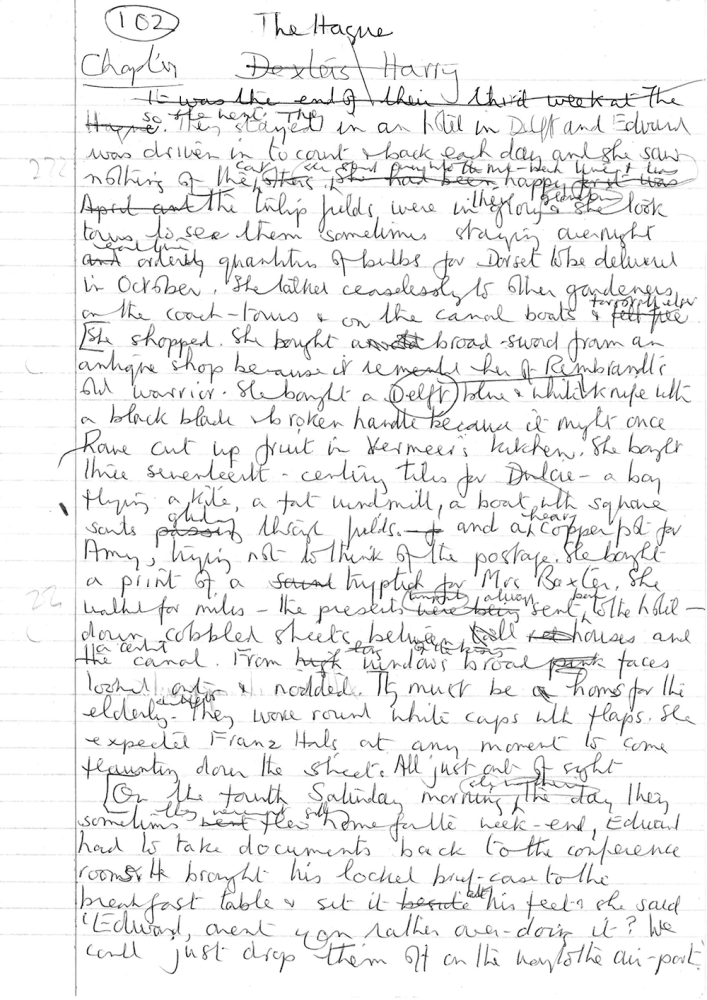 102
The Hague
Chapter Dexters Harry
It was the end of their third week at The
Hague. so she went. They stayed in an hotel in Delft and Edward
was driven in to court & back each day and she saw
nothing of the others, she had been happy for it was
April and the tulip fields were in their glory & she took
tours to see them sometimes staying overnight
and ordering quantities of bulbs for Dorset to be delivered
in October. She talked ceaselessly to other gardeners
on the coach-tours & on the canal boats & felt free
She shopped. She bought a broad-sword from an
antique shop because it reminded her of Rembrandt's
old warrior. She bought a Delft blue & white knife with
a black blade & broken handle because it might once
have cut up fruit in Vermeer's kitchen. She bought
three seventeenth-century tiles for Dulcie - a boy
flying a kite, a fat windmill, a boat with square
sails passing gliding through fields. and a heavy copper pot for
Amy, trying not to think of the postage. She bought
a print of a tryptich for Mrs Baxter. She
walked for miles - the presents were being sent to the hotel -
down cobbled streets between tall houses and
the a central canal. From high windows broad pink faces
looked out & nodded. It must be a home for the
elderly. They wore round white caps with flaps. She
expected Franz Hals at any moment to come
flaunting down the street. All just out of sight
On the fourth Saturday morning, the day they
sometimes flew home for the week-end, Edward
had to take documents back to the conference
room. He brought his locked brief-case to the
breakfast table & set it beside at his feet & she said
'Edward, aren't you rather over-doing it? We
could just drop them off on the way to the air-port.